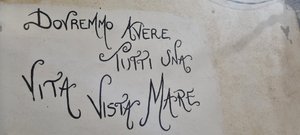 DOVREMMO AVERE
TUTTI UNA
VITA VISTA MARE